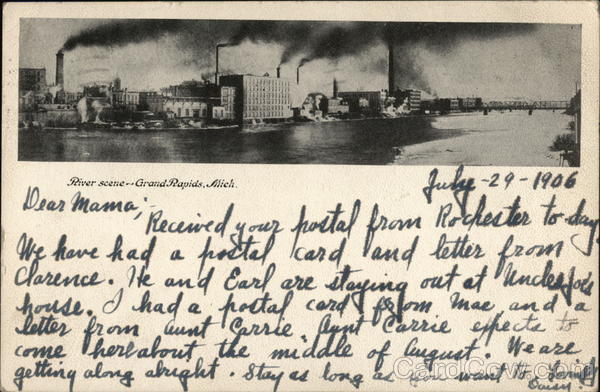 River scene--Grand Rapids, Mich.
July-29-1906
Dear Mama;
Received your postal from Rochester to-day
We have had a postal card and letter from
Clarence. He and Earl are staying out at Uncle Joe's
house. I had a postal card from Mae and a
letter from aunt Carrie Aunt Carrie expects to
come here about the middle of August. We are
getting along alright. Stay as long as you want to.
Daisy
CardCow.com